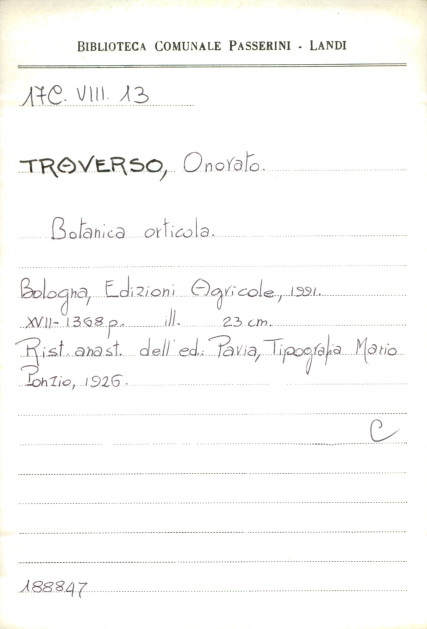 BIBLIOTECA COMUNALE PASSERINI - LANDI
17C. VIII. 13
TRAVERSO, Onorato.
Botanica orticola.
Bologna, Edizioni Agricole, 1991.
XVII-1368 p. ill. 23 cm.
Rist. anast. dell'ed.: Pavia, Tipografia Mario
Ponzio, 1926.
C
188847